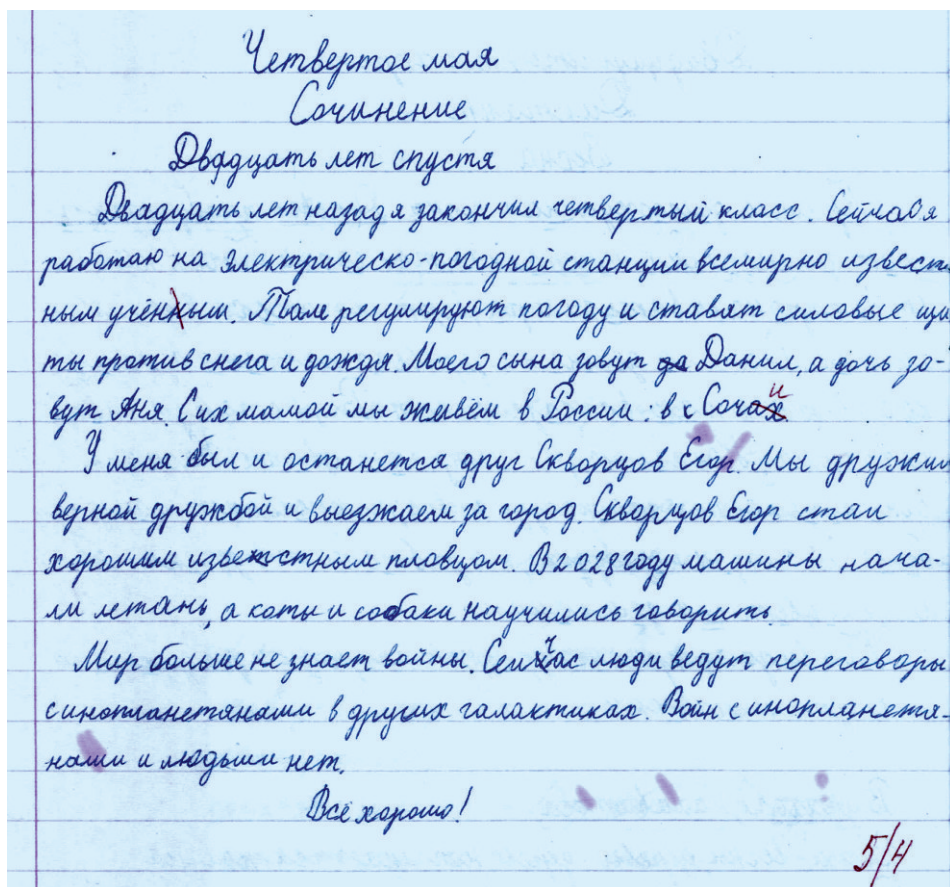 Четвертое мая
Сочинение
Двадцать лет спустя
Двадцать лет назад я закончил четвертый класс. Сейчас я
работаю на электрическо-погодной станции всемирно извест-
ным учённым. Там регулируют погоду и ставят силовые щи
ты против снега и дождя. Моего сына зовут да Данил, а дочь зо-
вут Аня. С их мамой мы живём в России: в с Сочах и
У меня был и останется друг Скворцов Егор. Мы дружим
верной дружбой и выезжаем за город. Скворцов Егор стал
хорошим пловцом. В 2028 году машины нача-
ли летань, а коты и собаки научились говорить.
Мир больше не знает войны. Сейчас люди ведут переговоры
с инопланетянами в других галактиках. Войн с инопланетя-
нами и людьми нет.
Всё хорошо!
5/4